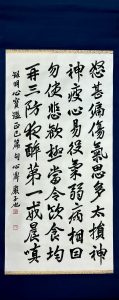 怒甚偏傷氣思多太損神
神疲心易役氣弱病相因
勿使悲歡極當令飲食均
再三防夜醉第一戒晨嗔
明心寶鑑